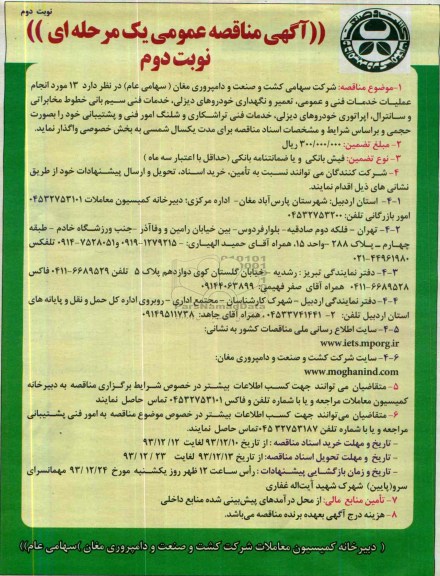 نوبت دوم
((آگهی مناقصه عمومی یک مرحله ای ))
نوبت دوم
۱-موضوع مناقصه: شرکت سهامی کشت و صنعت و دامپروری مغان ( سهامی عام) در نظر دارد ۱۳ مورد انجام
عملیـات خدمـات فنی و عمومی، تعمیر و نگهداری خودروهای دیزلی، خدمات فنی سیم بانی خطوط مخابراتی
و سانترال، اپراتوری خودروهای دیزلی، خدمات فنی تراشکاری و شلنگ امور فنی و پشتیبانی خود را بصورت
حجمی و براساس شرایط و مشخصات اسناد مناقصه برای مدت یکسال شمسی به بخش خصوصی واگذار نماید.
۲- مبلغ تضمین: ۳۰۰/۰۰۰/۰۰۰ ریال
۳- نوع تضمین: فیش بانکی و یا ضمانتنامه بانکی (حداقل با اعتبار سه ماه )
۴- شرکت کنندگان می توانند نسبت به تأمین، خرید اسناد، تحویل و ارسال پیشنهادات خود از طریق
نشانی های ذیل اقدام نمایند.
۴-۱- استان اردبیل: شهرستان پارس آباد مغان- اداره مرکزی؛ دبیرخانه کمیسیون معاملات ۰۴۵۳۲۷۵۳۱۰۱
امور بازرگانی تلفن: ۰۴۵۳۲۷۵۳۲۰۰
۴-۲- تهران - فلکه دوم صادقیه- بلوارفردوس- بین خیابان رامین و وفاآذر -جنب ورزشگاه خادم - طبقه
چهارم ـ پـلاک ۲۸۸ -واحد ۱۵، همراه آقـای حمید الهیـاری- ۰۹۱۹-۱۲۷۹۲۱۵ و ۰۹۱۴-۷۵۲۸۰۵۱ تلفکس
۰۲۱-۴۴۹۶۱۹۸۰
۴-۳- دفتر نمایندگی تبریز : رشدیه - خیابان گلستان کوی دوازدهم پلاک ۵ تلفن ۶۶۸۹۵۲۹-۰۴۱۱ فاکس
۶۶۸۹۵۲۸-۰۴۱۱ همراه آقای صفر فهیمی: ۰۹۱۴۴۰۶۳۸۹۹
۴-۴- دفتر نمایندگی اردبیل - شهرک کارشناسان - مجتمع اداری - روبروی اداره کل حمل و نقل و پایانه های
استان اردبیل تلفن: ۲-۰۴۵۳۳۷۴۱۴۴۱ ، همراه آقای جاهد: ۰۹۱۴۹۵۱۱۷۳۸
۴-۵- سایت اطلاع رسانی ملی مناقصات کشور به نشانی:
www.iets.mporg.ir
۴-۶- سایت شرکت کشت و صنعت و دامپروری مغان:
www.moghanind.com
۵- متقاضیـان می توانند جهت کسـب اطلاعات بیشـتر در خصوص شـرایط برگـزاری مناقصه به دبیرخانه
کمیسیون معاملات مراجعه و یا با شماره تلفن و فاکس ۰۴۵۳۲۷۵۳۱۰۱ تماس حاصل نمایند
۶- متقاضیان می توانند جهت کسـب اطلاعات بیشتر در خصوص موضوع مناقصه به امور فنی پشـتیبانی
مراجعه و یا با شماره تلفن ۰۴۵۳۲۷۵۳۱۸۷ تماس حاصل نمایند.
- تاریخ و مهلت خرید اسناد مناقصه : از تاریخ ۹۳/۱۲/۱۰ لغایت ۹۳/۱۲/۱۲
- تاریخ و مهلت تحویل اسناد مناقصه: از تاریخ ۹۳/۱۲/۱۳ لغایت ۹۳/۱۲/۲۳
- تاریخ و زمان بازگشـایی پیشـنهادات : رأس ساعت ۱۲ ظهر روز یکشـنبه مورخ ۹۳/۱۲/۲۴ مهمانسرای
سرو(پایین) شهرک شهید آیت‌اله غفاری
۷- تأمین منابع مالی: از محل درآمدهای پیش‌بینی شده منابع داخلی
۸- هزینه درج آگهی بعهده برنده مناقصه می‌باشد.
( دبیرخانه کمیسیون معاملات شرکت کشت و صنعت و دامپروری مغان )سهامی عام))